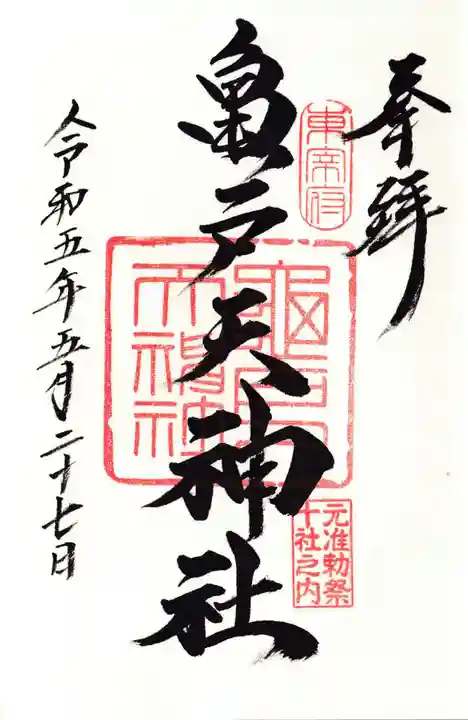 奉拝
東宰府
亀戸天神社
元准勅祭
十社之内
令和五年五月二十七日